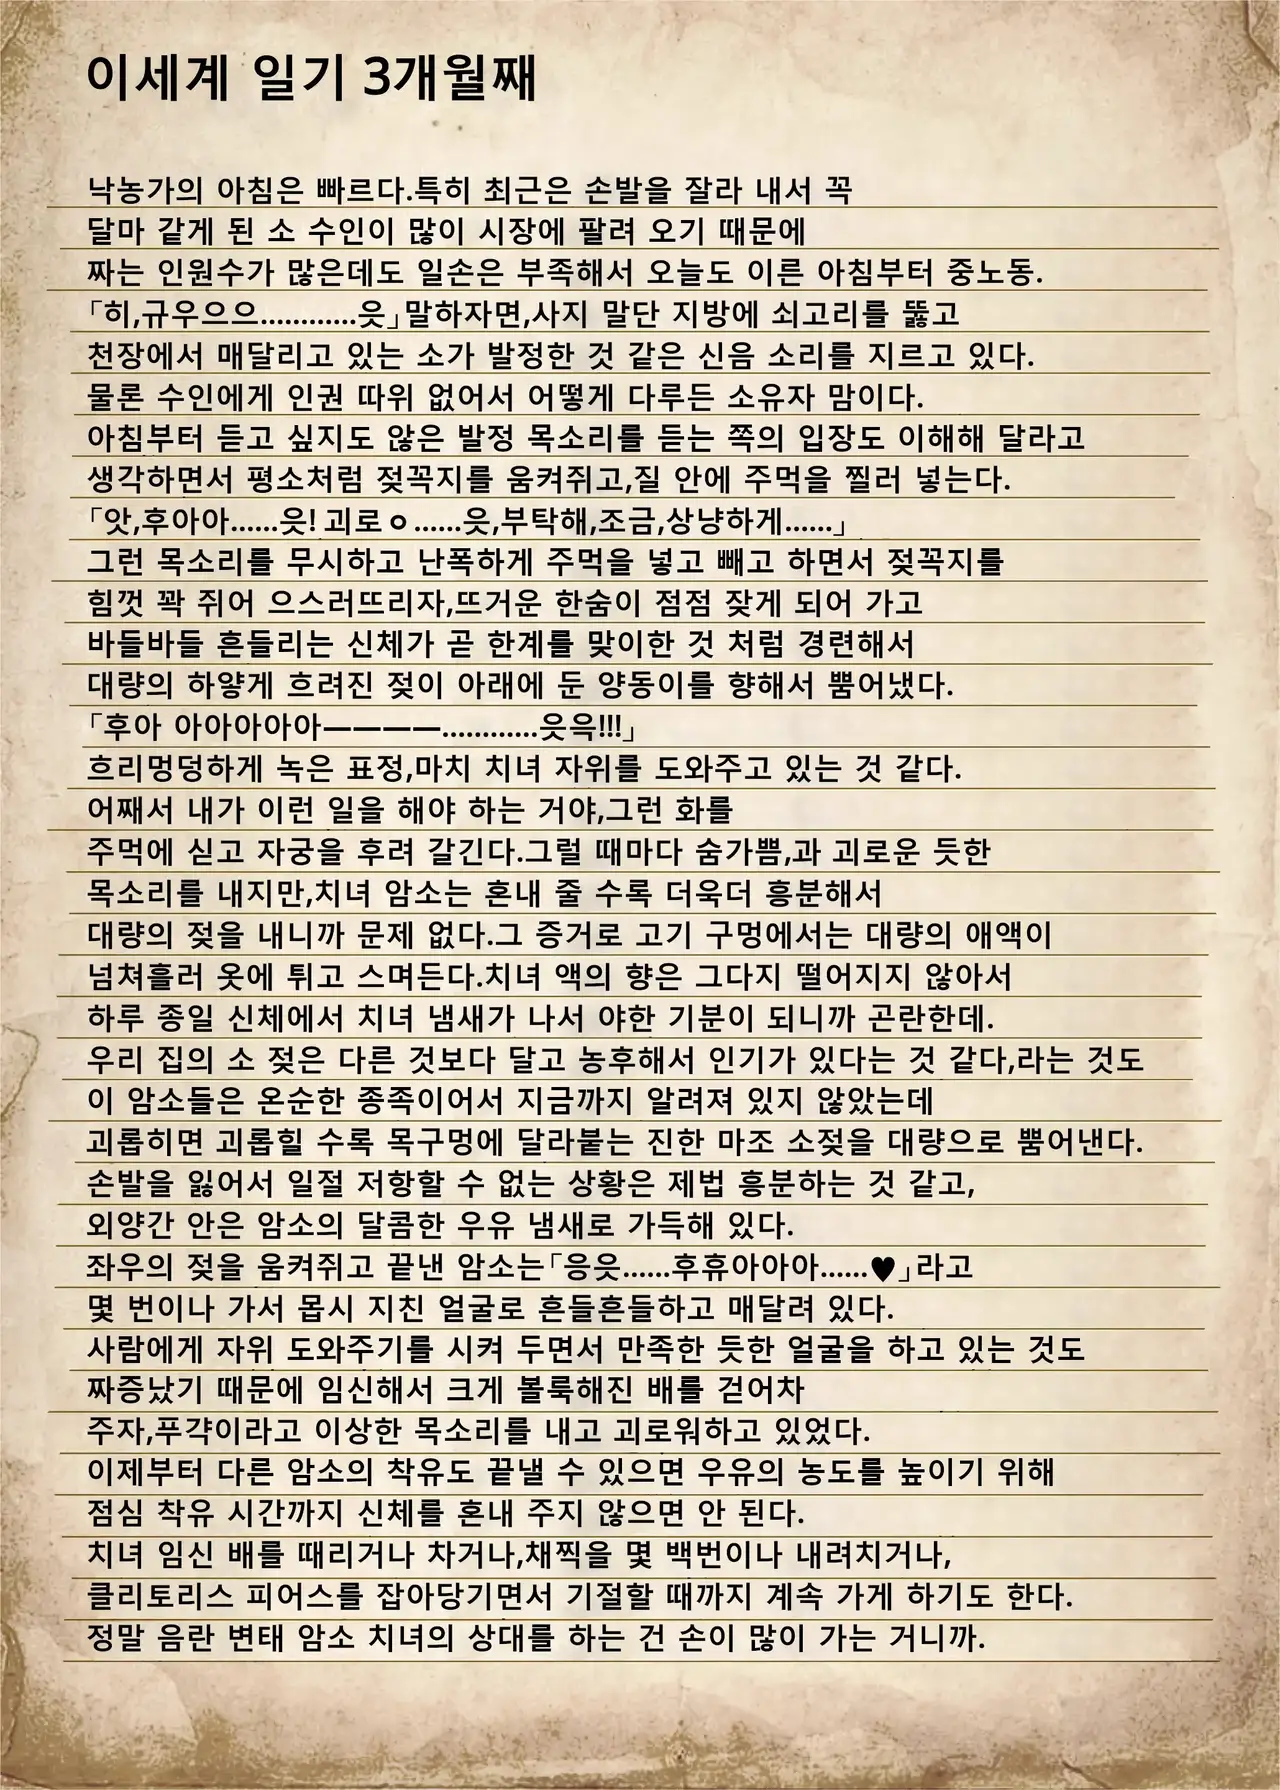 이세계 일기 3개월째
낙농가의 아침은 빠르다.특히 최근은 손발을 잘라 내서 꼭
달마 같게 된 소 수인이 많이 시장에 팔려 오기 때문에
짜는 인원수가 많은데도 일손은 부족해서 오늘도 이른 아침부터 중노동.
「히,규우으으…………읏」말하자면,사지 말단 지방에 쇠고리를 뚫고
천장에서 매달리고 있는 소가 발정한 것 같은 신음 소리를 지르고 있다.
물론 수인에게 인권 따위 없어서 어떻게 다루든 소유자 맘이다.
아침부터 듣고 싶지도 않은 발정 목소리를 듣는 쪽의 입장도 이해해 달라고
생각하면서 평소처럼 젖꼭지를 움켜쥐고,질 안에 주먹을 찔러 넣는다.
「앗,후아아……읏! 괴로ㅇ……읏,부탁해,조금,상냥하게……」
그런 목소리를 무시하고 난폭하게 주먹을 넣고 빼고 하면서 젖꼭지를
힘껏 꽉 쥐어 으스러뜨리자,뜨거운 한숨이 점점 잦게 되어 가고
바들바들 흔들리는 신체가 곧 한계를 맞이한 것 처럼 경련해서
대량의 하얗게 흐려진 젖이 아래에 둔 양동이를 향해서 뿜어냈다.
「후아 아아아아아――――…………읏윽!!!」
흐리멍덩하게 녹은 표정,마치 치녀 자위를 도와주고 있는 것 같다.
어째서 내가 이런 일을 해야 하는 거야,그런 화를
주먹에 싣고 자궁을 후려 갈긴다.그럴 때마다 숨가쁨,과 괴로운 듯한
목소리를 내지만,치녀 암소는 혼내 줄 수록 더욱더 흥분해서
대량의 젖을 내니까 문제 없다.그 증거로 고기 구멍에서는 대량의 애액이
넘쳐흘러 옷에 튀고 스며든다.치녀 액의 향은 그다지 떨어지지 않아서
하루 종일 신체에서 치녀 냄새가 나서 야한 기분이 되니까 곤란한데.
우리 집의 소 젖은 다른 것보다 달고 농후해서 인기가 있다는 것 같다,라는 것도
이 암소들은 온순한 종족이어서 지금까지 알려져 있지 않았는데
괴롭히면 괴롭힐 수록 목구멍에 달라붙는 진한 마조 소젖을 대량으로 뿜어낸다.
손발을 잃어서 일절 저항할 수 없는 상황은 제법 흥분하는 것 같고,
외양간 안은 암소의 달콤한 우유 냄새로 가득해 있다.
좌우의 젖을 움켜쥐고 끝낸 암소는「응읏……후휴아아아……♥」라고
몇 번이나 가서 몹시 지친 얼굴로 흔들흔들하고 매달려 있다.
사람에게 자위 도와주기를 시켜 두면서 만족한 듯한 얼굴을 하고 있는 것도
짜증났기 때문에 임신해서 크게 볼룩해진 배를 걷어차
주자,푸갹이라고 이상한 목소리를 내고 괴로워하고 있었다.
이제부터 다른 암소의 착유도 끝낼 수 있으면 우유의 농도를 높이기 위해
점심 착유 시간까지 신체를 혼내 주지 않으면 안 된다.
치녀 임신 배를 때리거나 차거나,채찍을 몇 백번이나 내려치거나,
클리토리스 피어스를 잡아당기면서 기절할 때까지 계속 가게 하기도 한다.
정말 음란 변태 암소 치녀의 상대를 하는 건 손이 많이 가는 거니까.